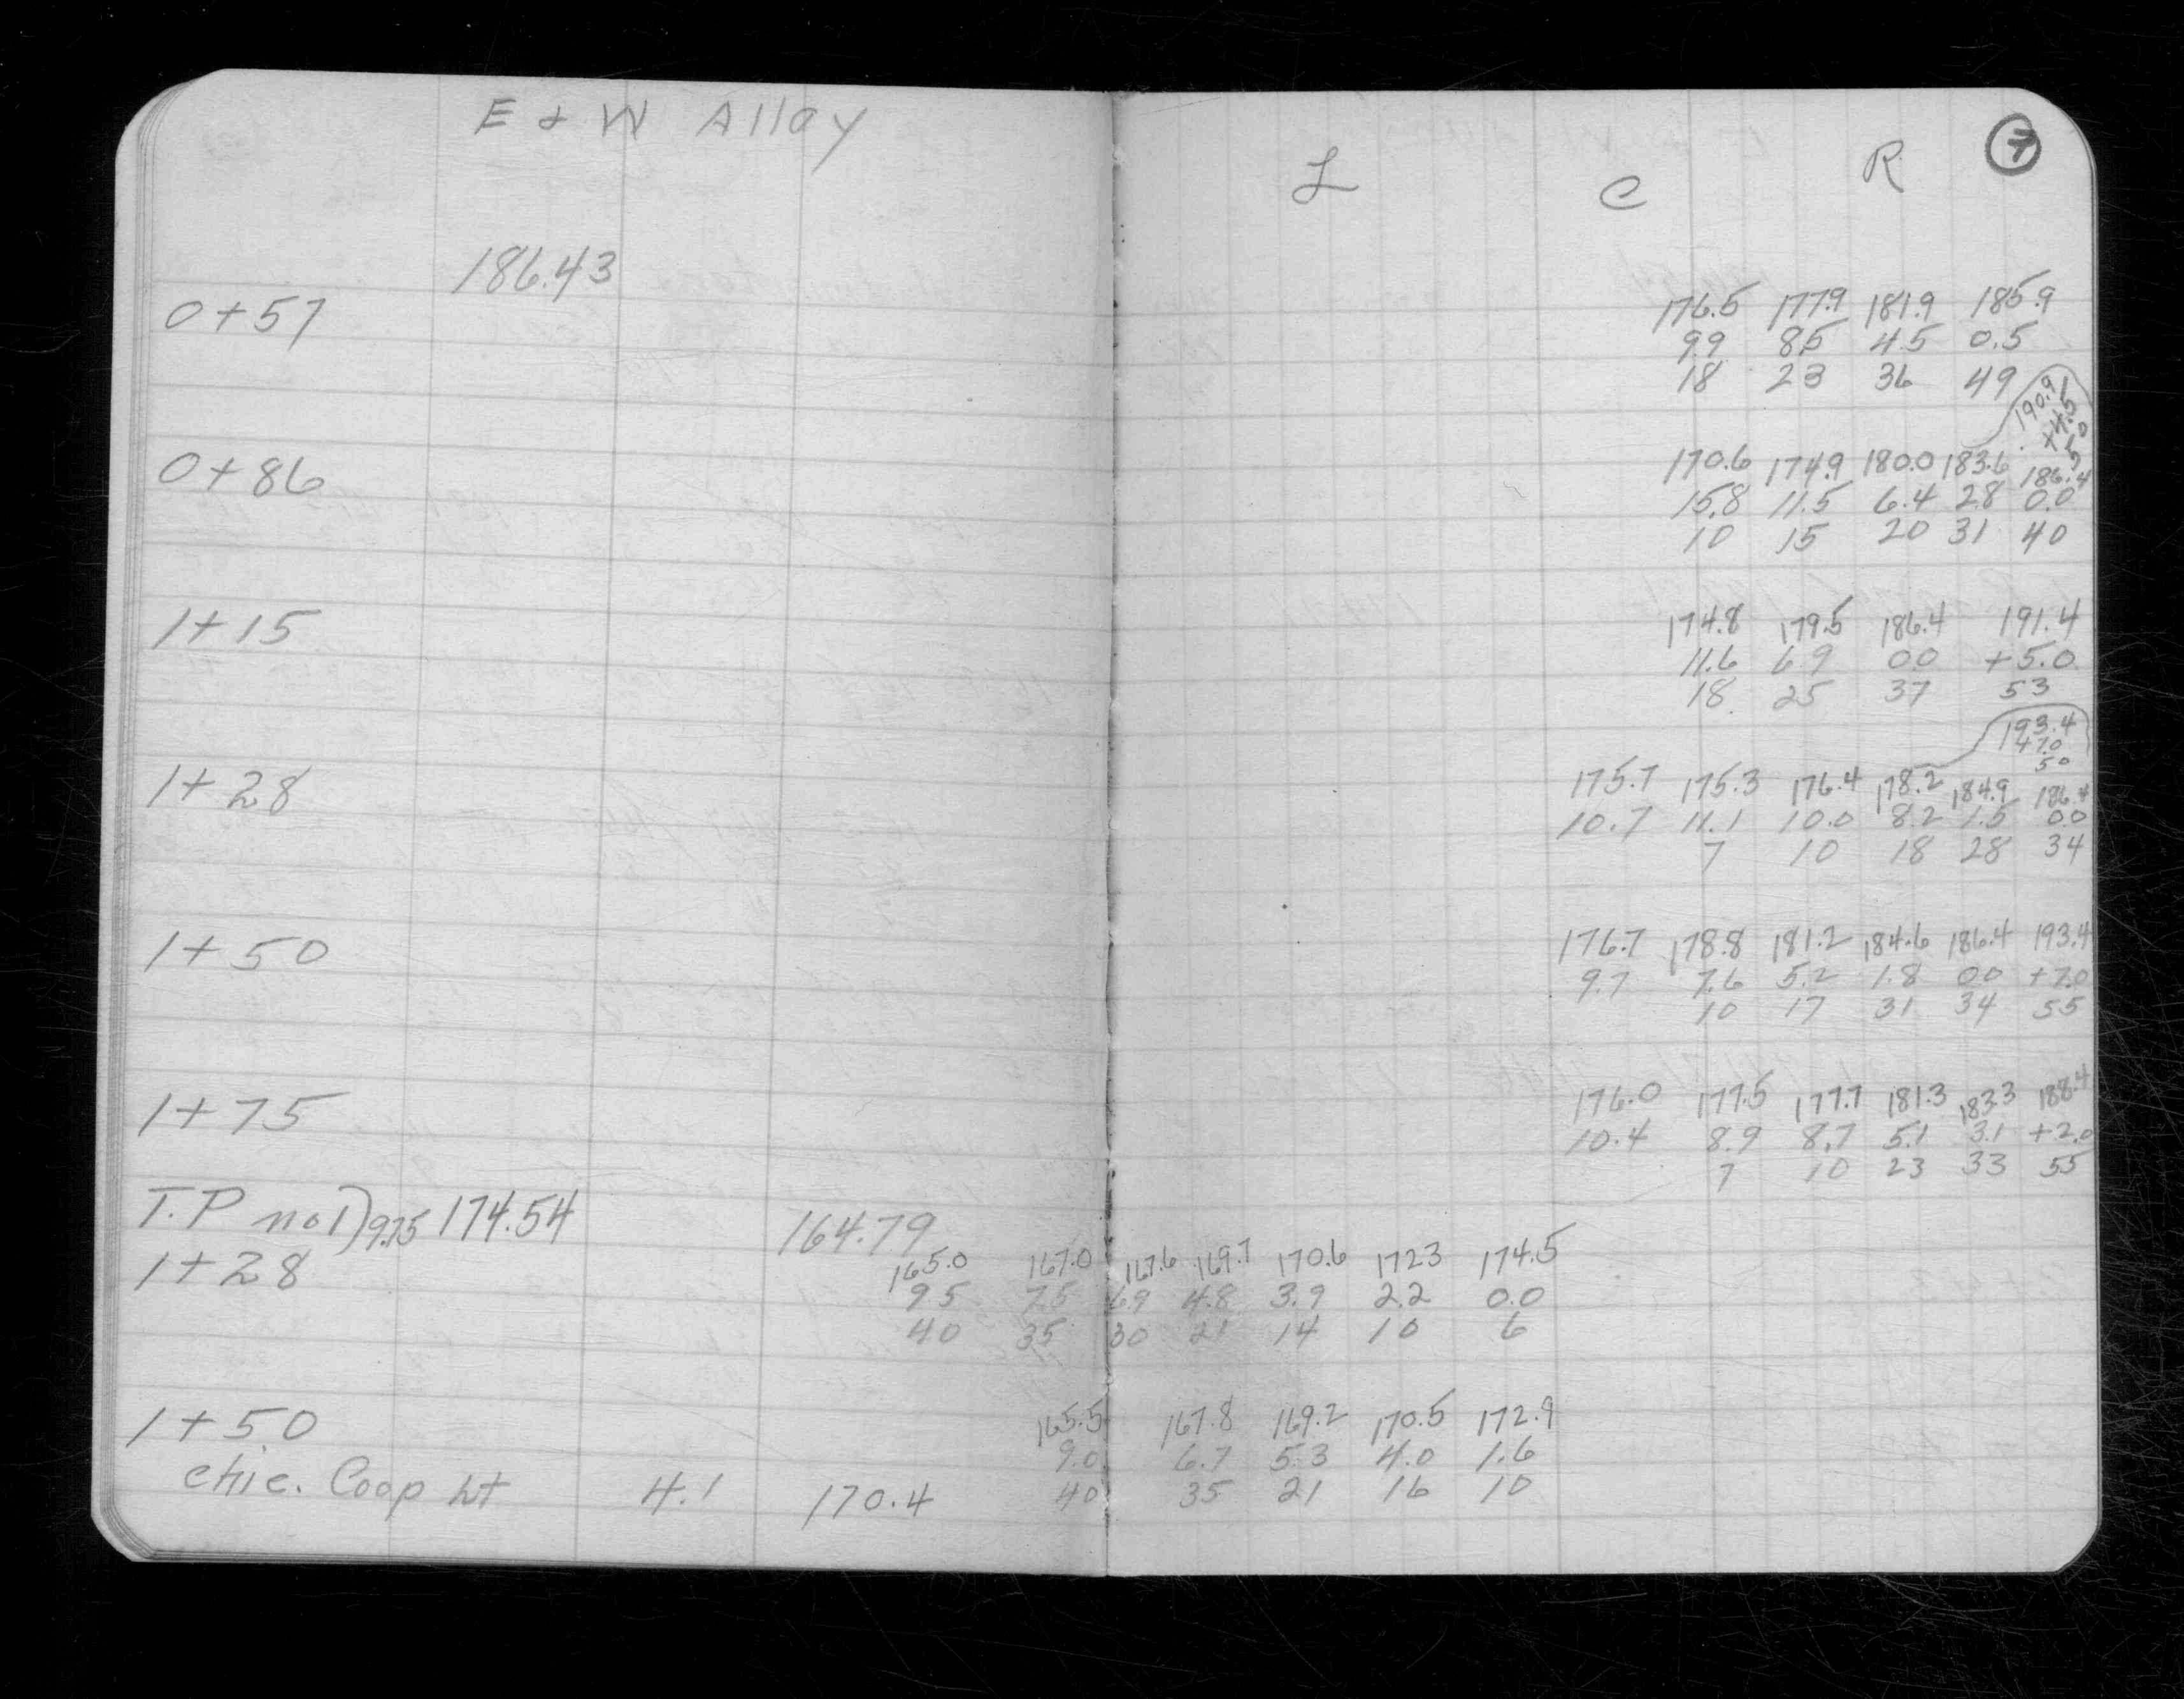 E & W Alley
L C R 7
186.43
0+57 176.5 177.9 181.9 185.9
9.9 8.5 4.5 0.5
18 23 36 49
190.9
+4.5
50
0+86 170.6 174.9 180.0 183.6 186.4
15.8 11.5 6.4 2.8 0.0
10 15 20 31 40
1+15 174.8 179.5 186.4 191.4
11.6 6.9 0.0 +5.0
18 25 37 53
193.4
+7.0
50
1+28 175.7 175.3 176.4 178.2 184.9 186.4
10.7 11.1 10.0 8.2 1.5 0.0
7 10 18 28 34
1+50 176.7 178.8 181.2 184.6 186.4 193.4
9.7 7.6 5.2 1.8 0.0 +7.0
10 17 31 34 55
1+75 176.0 177.5 177.7 181.3 183.3 188.4
10.4 8.9 8.7 5.1 3.1 +2.0
7 10 23 33 55
T.P no 1) 9.75 174.54 164.79
1+28 165.0 167.0 167.6 169.7 170.6 172.3 174.5
9.5 7.5 6.9 4.8 3.9 2.2 0.0
40 35 30 21 14 10 6
1+50 165.5 167.8 169.2 170.5 172.9
9.0 6.7 5.3 4.0 1.6
40 35 21 16 10
Chic. Coop Lt 4.1 170.4